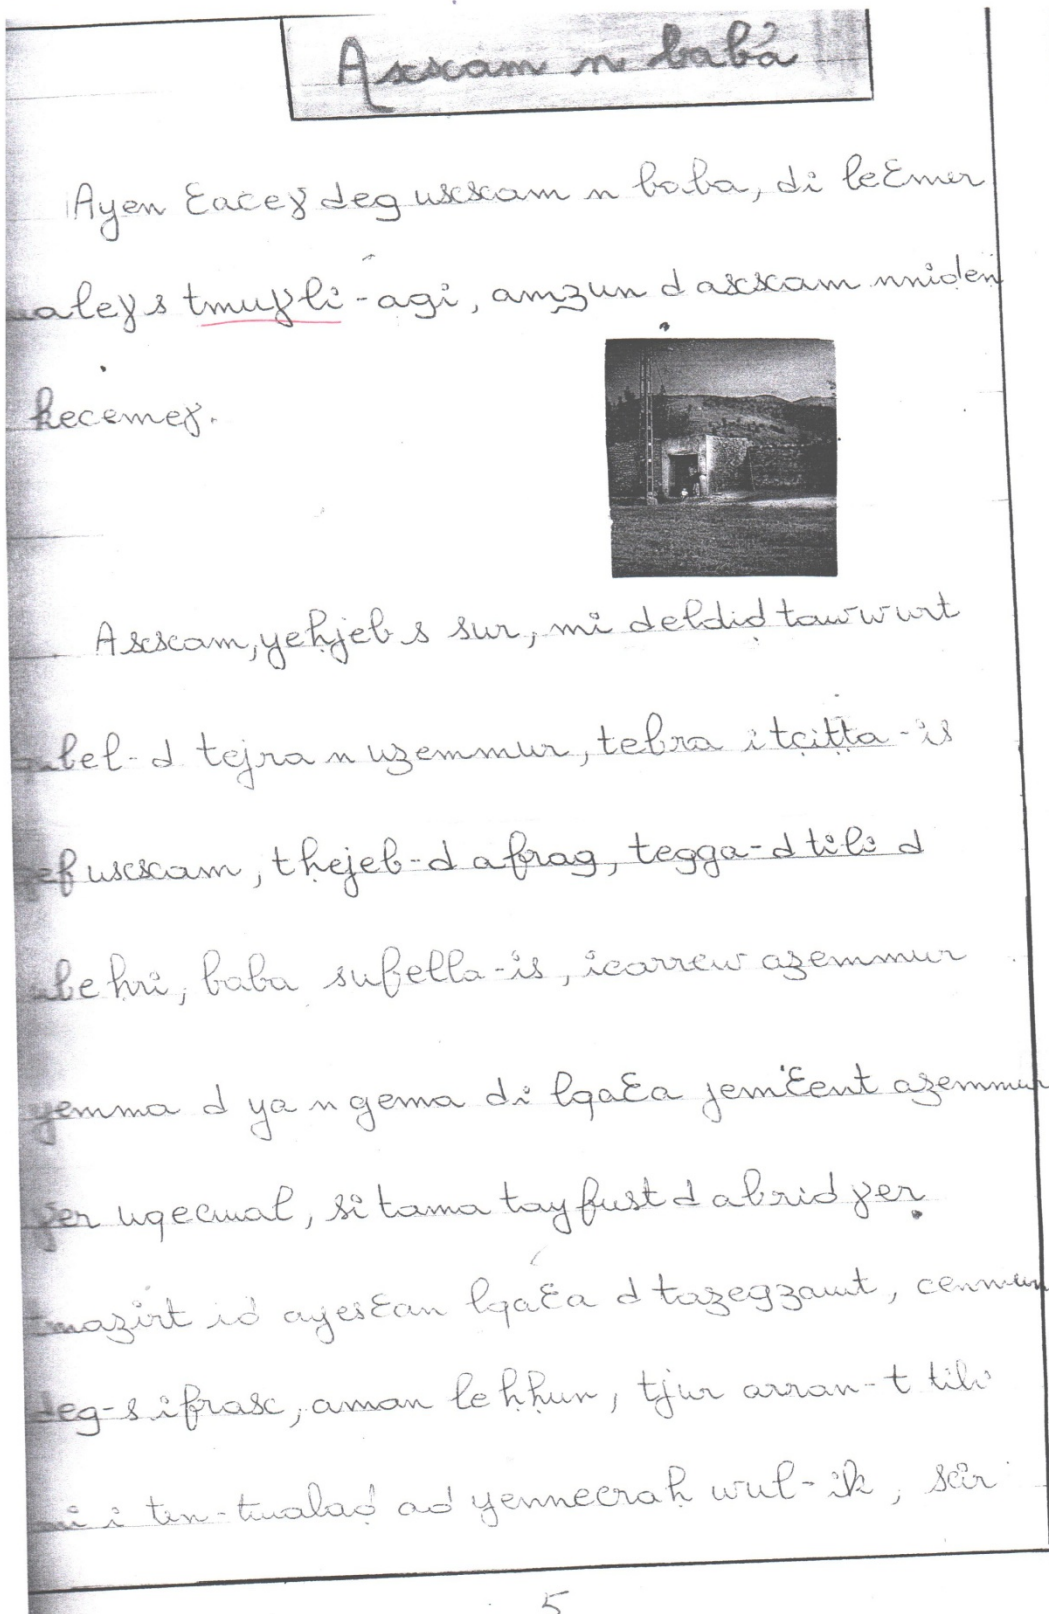 Axxam n baba
Ayen Ɛaceɣ deg uxxam n baba, di leƐmer
ualeɣ s tmuɣli-agi, amzun d axxam nniḍen
kecemeɣ.
Axxam, yeḥjeb s sur, mi deldiḍ tawwurt
d tejra n uzemmur, tebra i tciṭṭa-is
ɣef uxxam, tḥejeb-d afrag, tegga-d tili d
ubeḥri, baba sufella-is, icarrew azemmur
yemma d ya n gema di lqaƐa jemƐent azemmur
ɣer uqecwal, si tama tayfust d abrid ɣer
tmazirt id ayesƐan lqaƐa d tazegzawt, cennun
deg-s ifrax, aman leḥḥun, tjur arran-t tili
mi i ten-twalaḍ ad yennecraḥ wul-ik, xir
5